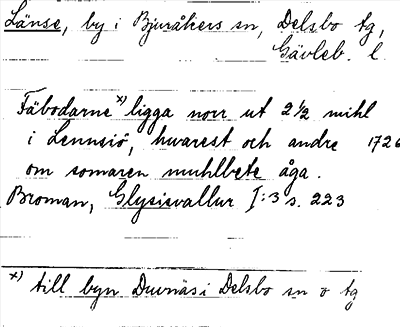 Länse, by i Bjuråkers sn, Delsbo tg,
Gävleb. l.
Fäbodarne x) ligga norr ut 2 1/2 mihl
i Lennsiö, hwarest och andre 1726
om somaren muhlbete åga.
Broman, Glysisvallur I:3 s. 223
x) till byn Duvnäs i Delsbo sn o tg